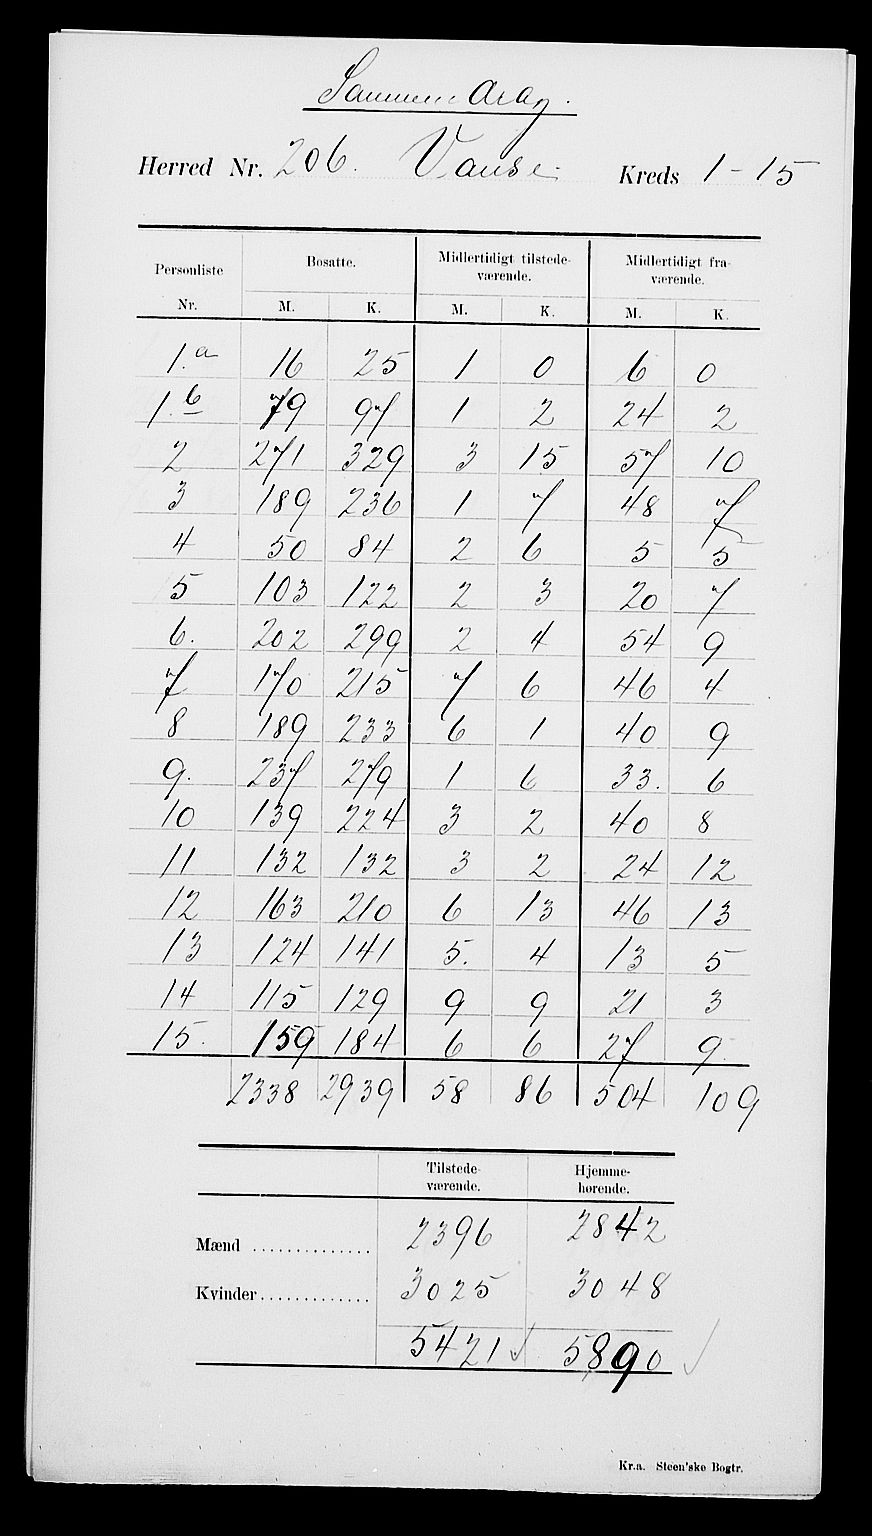 Sammendrag.
Herred Nr. 206. Vanse. Kreds 1-15
Personliste Nr. Bosatte. Midlertidigt tilstede-værende. Midlertidigt fra-værende.
M. K. M. K. M. K.
1.a 16 25 1 0 6 0
1.b 79 97 1 2 24 2
2 271 329 3 15 57 10
3 189 236 1 7 48 7
4 50 84 2 6 5 5
5 103 122 2 3 20 7
6. 202 299 2 4 54 9
7 170 215 7 6 46 4
8 189 233 6 1 40 9
9. 237 279 1 6 33. 6
10 139 224 3 2 40 8
11 132 132 3 2 24 12
12 163 210 6 13 46 13
13 124 141 5. 4 13 5
14 115 129 9 9 21 3
15. 159 184 6 6 27 9.
2338 2939 58 86 504 109
Tilstede-værende. Hjemme-hørende.
Mænd .............. 2396 2842
Kvinder ............. 3025 3048
5421 ✓ 5890 ✓
Kr.a. Steen'ske Bogtr.